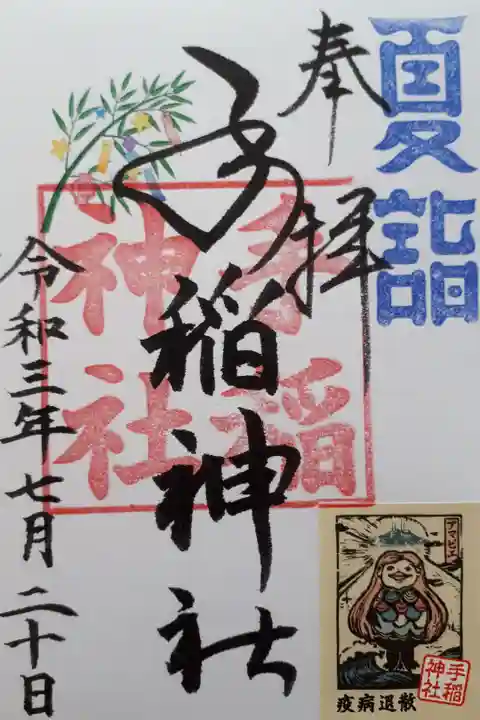 夏詣
奉拝
手稲神社
手稲
神社
令和三年七月二十日
アマビエ
手稲
神社
疫病退散